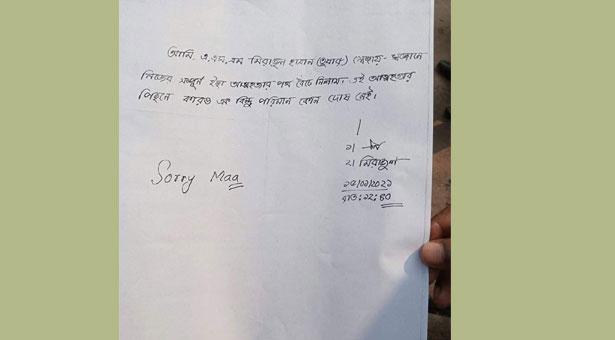 আমি, এ,এম,এম মিরাজুল হাসান (তুষার) স্বেচ্ছায়-স্বজ্ঞানে
নিজের সম্পূর্ন ইচ্ছা আত্মহত্যার পথ বেঁচে নিলাম। এই আত্মহত্যার
পিছনে কারও এক বিন্দু পরিমান কোন দোষ নেই।
১।
২। মিরাজুল
Sorry Maa
রাত: ১২:৪০